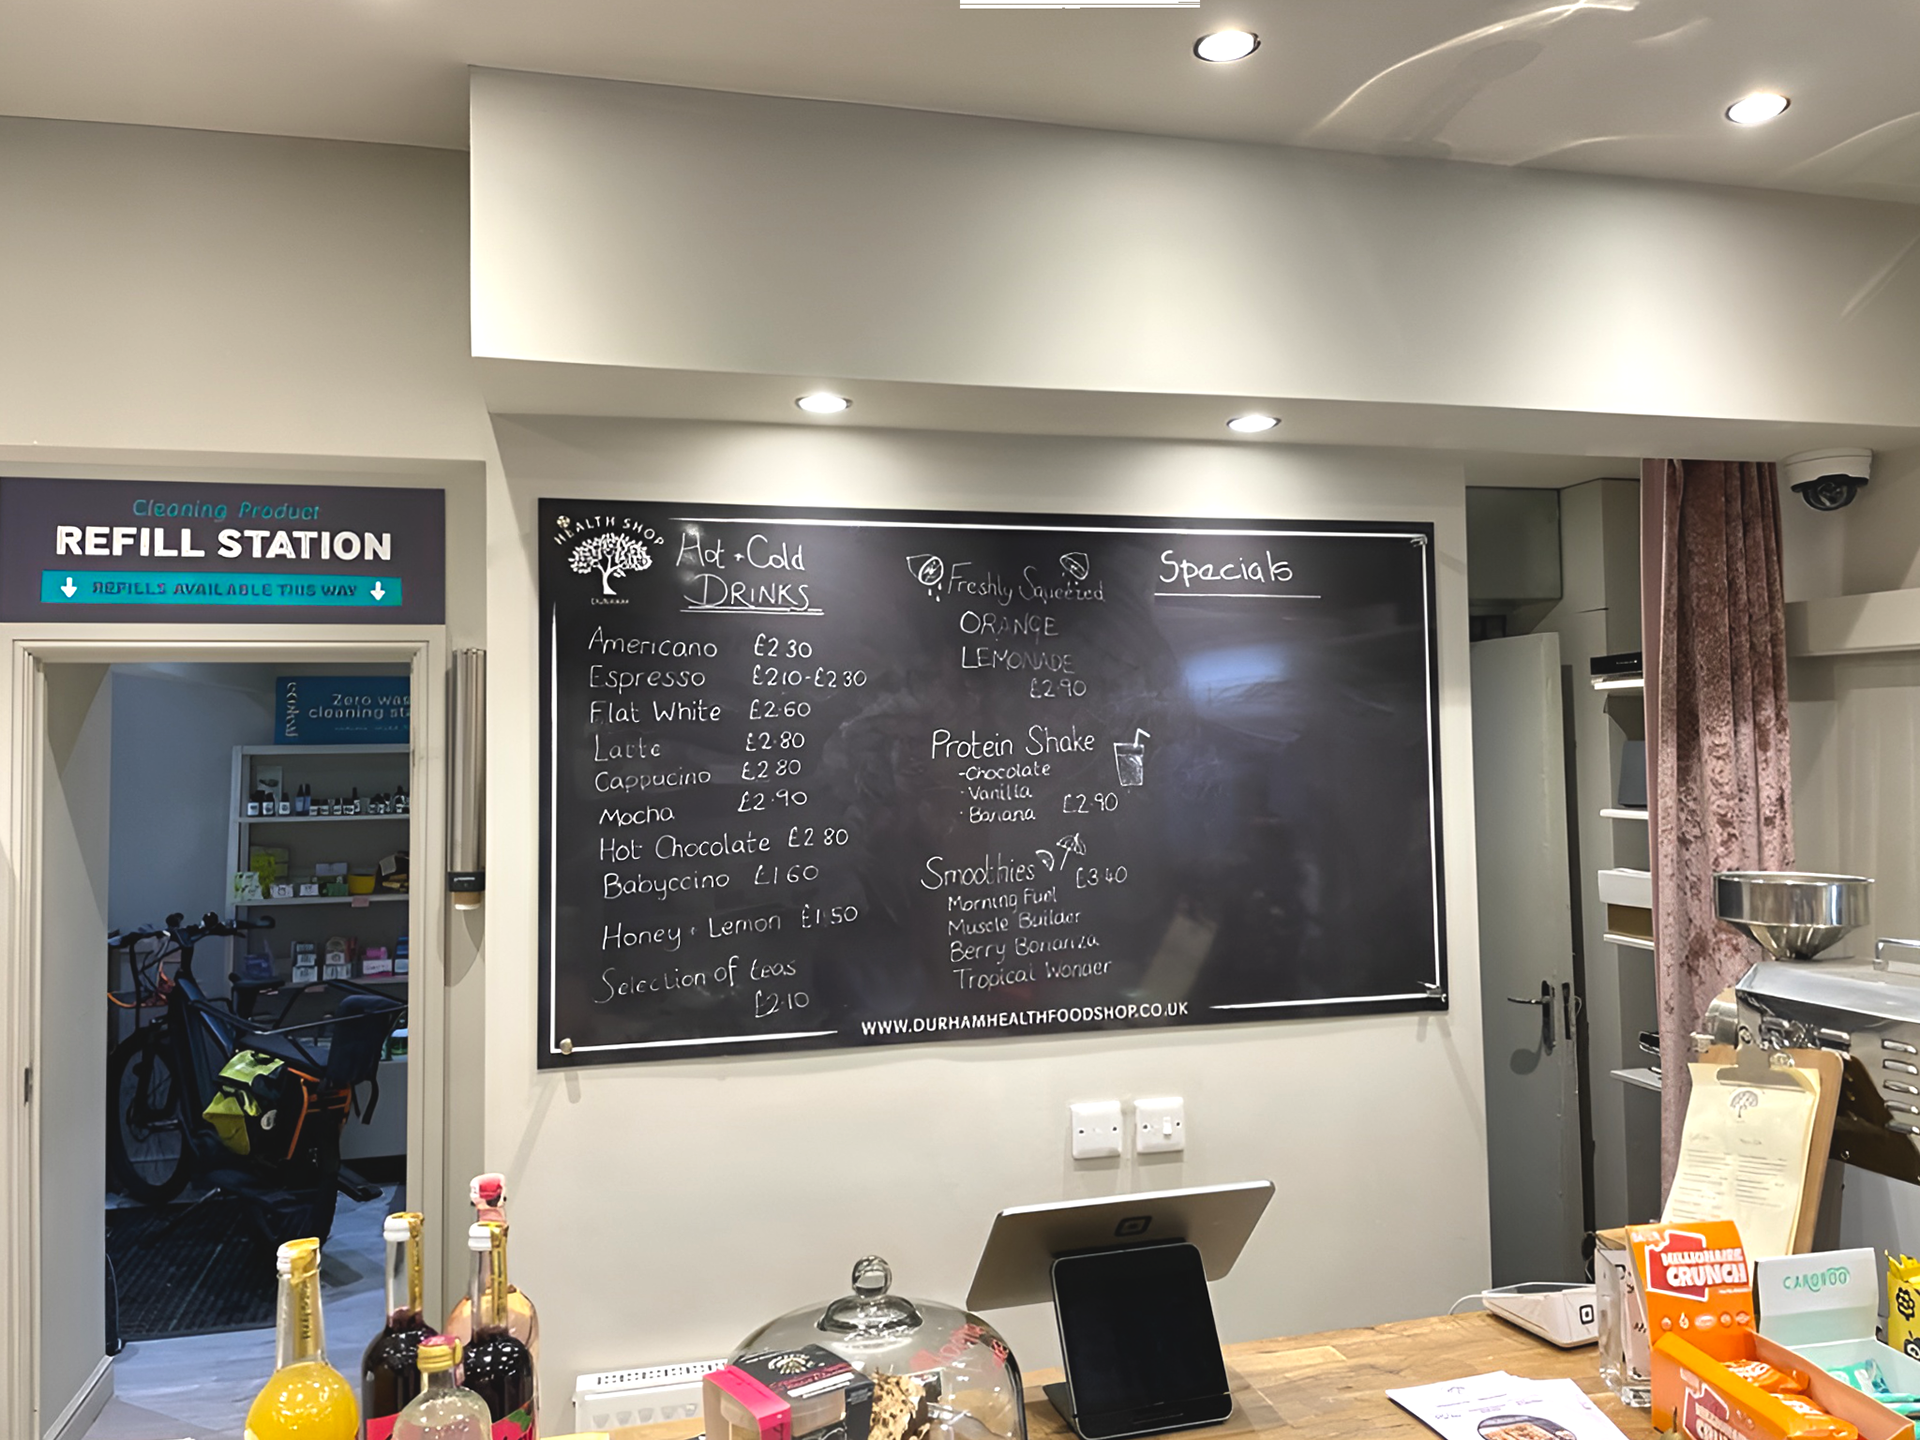 Cleaning Product
REFILL STATION
REFILLS AVAILABLE THIS WAY
Zero
cleaning
HEALTH SHOP
Hot + Cold
DRINKS
Americano £2 30
Espresso £2 10-£2 30
Flat White £2·60
Latte £2·80
Cappucino £2 80
Mocha £2·90
Hot Chocolate £2 80
Babyccino £1 60
Honey + Lemon £1·50
Selection of teas
£2·10
Freshly Squeezed
ORANGE
LEMONADE
£2·90
Protein Shake
-Chocolate
·Vanilla
·Banana £2·90
Smoothies £3 40
Morning Fuel
Muscle Builder
Berry Bonanza
Tropical Wonder
Specials
WWW.DURHAMHEALTHFOODSHOP.CO.UK
MILLIONAIRE
CRUNCH